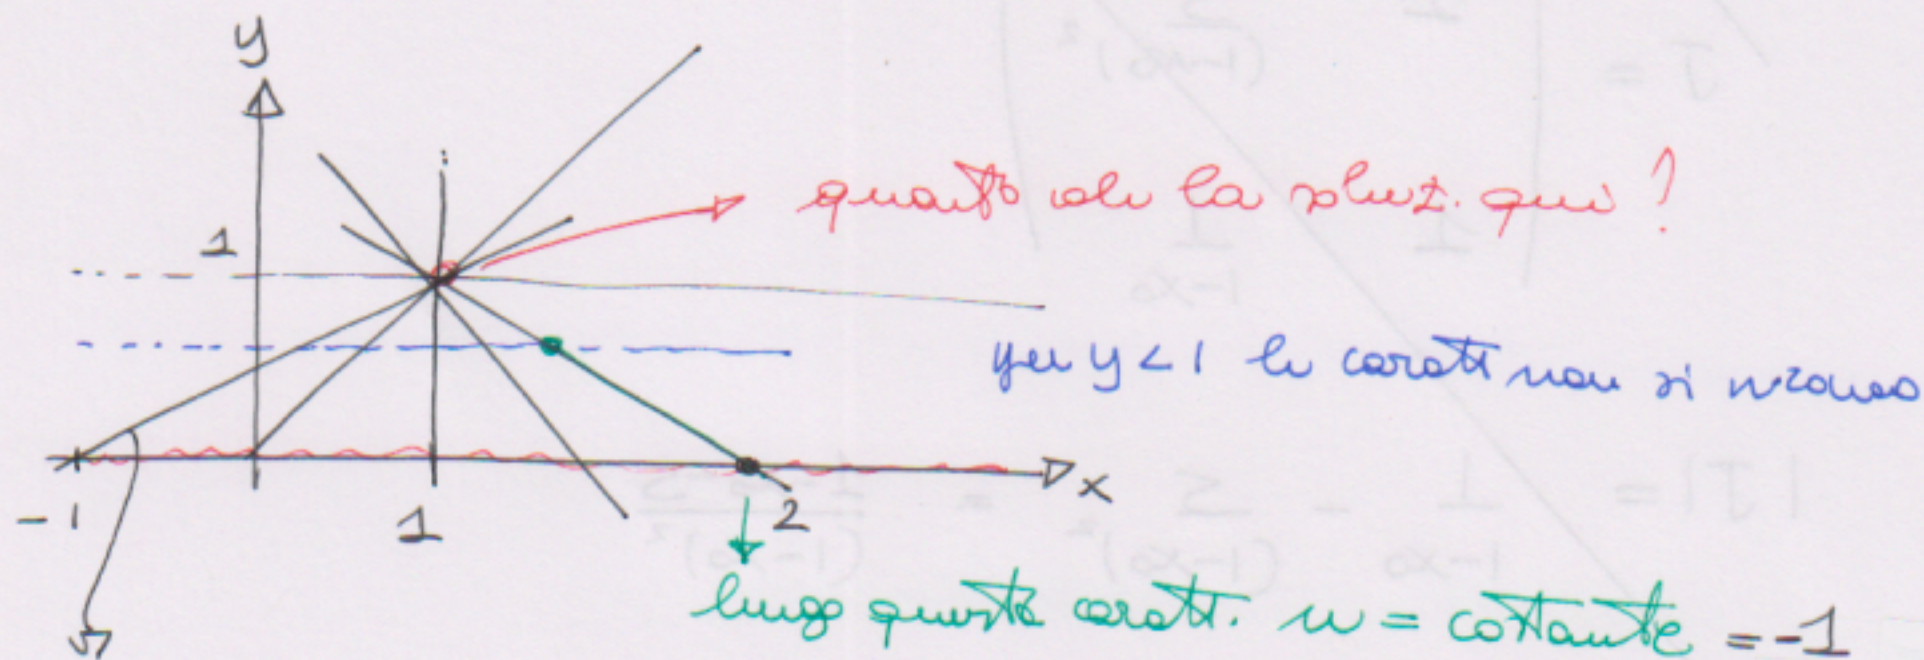 y
1
quanto vale la soluz. qui ?
per y < 1 le caratt non si incrociano
-1
1
2
x
lungo questa caratt. u = costante = -1